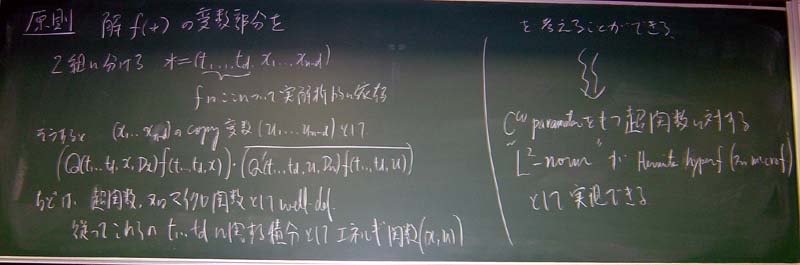 原則 解 f(*) の変数部分を
2組に分ける *=(t1,...,td, x1,...xn-d)
fはここについて実解析的に依存
そうすると (x1...xn-d)のcopy変数 (u1,...un-d)として
(Q(t1,...td, x, Dx)f(t1,...td, x))・(Q(t1,...td, u, Du)f(t1,...td, u))
などは、超関数、又はマイクロ関数としてwell-def.
従ってこれらの t1...td に関する積分としてエネルギー関数(x,u)
を考えることができる
Cω parameterをもつ超関数に対する
"L²-norm" が Hermite hyperf (又は microf)
として実現できる